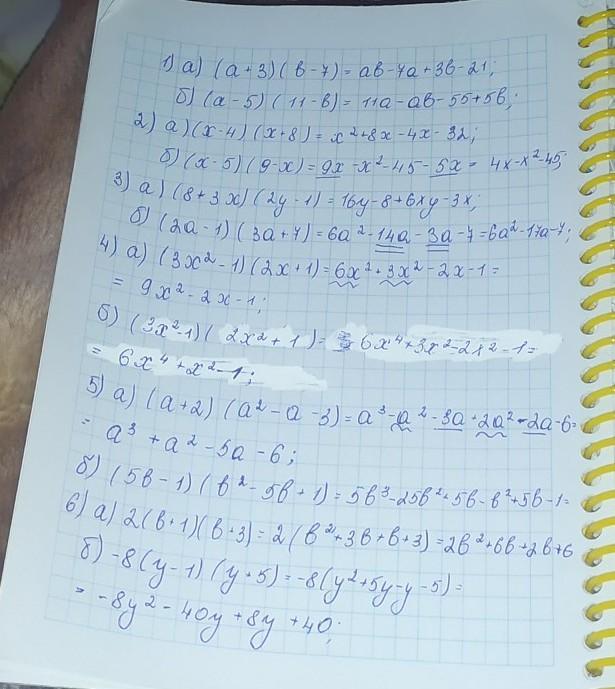 1) а) (a+3)(b-7)=ab-7a+3b-21;
б) (a-5)(11-b)=11a-ab-55+5b;
2) а) (x-4)(x+8)=x²+8x-4x-32;
б) (x-5)(9-x)=9x-x²-45-5x= 4x-x²-45;
3) а) (8+3x)(2y-1)=16y-8+6xy-3x;
б) (2a-1)(3a+7)=6a²-14a-3a-7=6a²-17a-7;
4) а) (3x²-1)(2x+1)=6x²+3x²-2x-1=
= 9x²-2x-1;
б) (3x²-1)(2x²+1)= 6x⁴+3x²-2x²-1=
= 6x⁴+x²-1;
5) а) (a+2)(a²-a-3)=a³-a²-3a+2a²-2a-6=
= a³+a²-5a-6;
б) (5b-1)(b²-5b+1)=5b³-25b²+5b-b²+5b-1=
6) а) 2(b+1)(b+3)=2(b²+3b+b+3)=2b²+6b+2b+6
б) -8(y-1)(y+5)=-8(y²+5y-y-5)=
= -8y²-40y+8y+40;